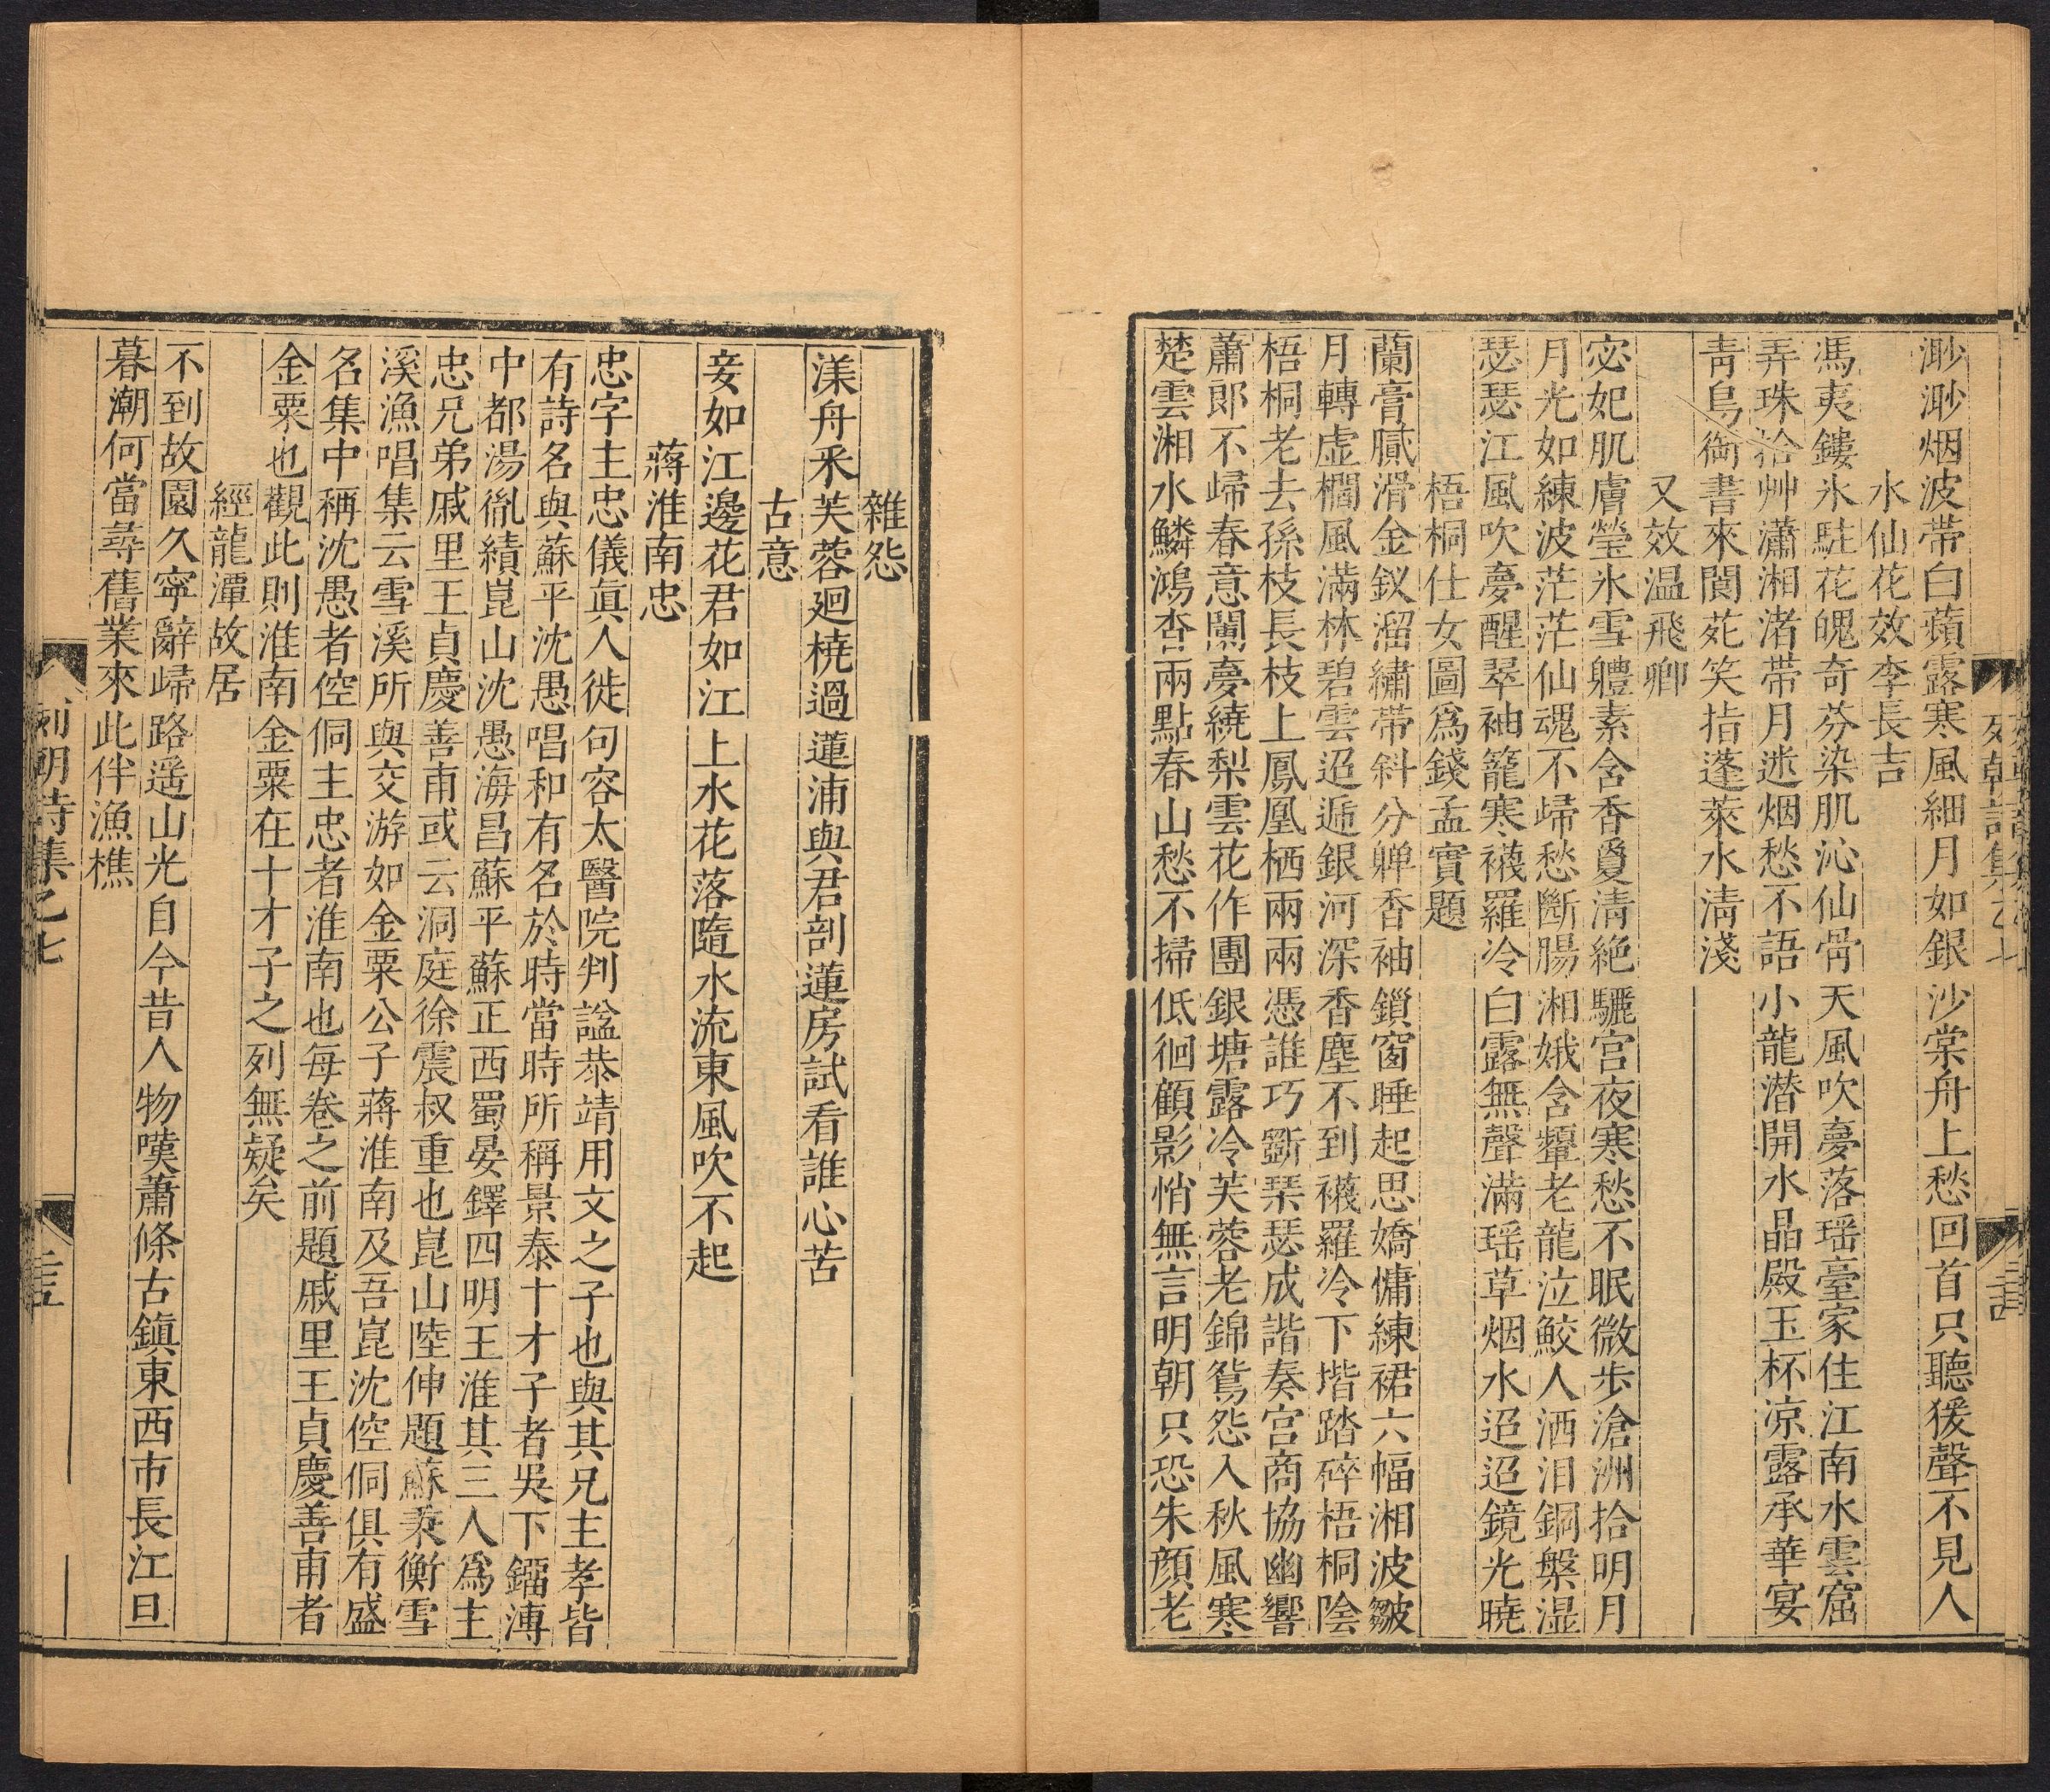 渺渺烟波带白蘋露寒風細月如銀沙棠舟上愁回首只聽猨聲不見人
水仙花效李長吉
馮夷鏤氷駐花魄奇芬染肌沁仙骨天風吹夢落瑶臺家住江南水雲窟
弄珠拾艸瀟湘渚带月迷烟愁不語小龍潜開水晶殿玉杯凉露承華宴
靑鳥銜書來閬苑笑指蓬萊水淸淺
又效温飛卿
宓妃肌膚瑩氷雪軆素含香爱淸絶驪宫夜寒愁不眠微步滄洲拾明月
月光如練波茫茫仙魂不歸愁斷腸湘娥含顰老龍泣鮫人洒泪銅槃湿
瑟瑟江風吹夢醒翠袖籠寒襪羅冷白露無聲滿瑶草烟水迢迢鏡光曉
梧桐仕女圖爲錢孟實題
蘭膏膩滑金釵溜繡带斜分亸香袖鎖窗睡起思嬌慵練裙六幅湘波皺
月轉虚櫩風滿林碧雲迢遞銀河深香塵不到襪羅冷下堦踏碎梧桐陰
梧桐老去孫枝長枝上鳳凰栖兩兩憑誰巧斵琹瑟成諧奏宫商協幽響
蕭郎不歸春意闌夢繞梨雲花作團銀塘露冷芙蓉老錦鴛怨入秋風寒
楚雲湘水鱗鴻杳兩點春山愁不掃低徊顧影悄無言明朝只恐朱顔老
雜怨
渼舟釆芙蓉廻橈過蓮浦與君剖蓮房試看誰心苦
古意
妾如江邊花君如江上水花落隨水流東風吹不起
蔣淮南忠
忠字主忠儀眞人徙句容太醫院判諡恭靖用文之子也與其兄主孝皆
有詩名與蘇平沈愚唱和有名於時當時所稱景泰十才子者吳下劉溥
中都湯胤績崑山沈愚海昌蘇平蘇正西蜀晏鐸四明王淮其三人爲主
忠兄弟戚里王貞慶善甫或云洞庭徐震叔重也崑山陸伸題蘇秉衡雪
溪漁唱集云雪溪所與交游如金粟公子蔣淮南及吾崑沈倥侗俱有盛
名集中稱沈愚者倥侗主忠者淮南也每卷之前題戚里王貞慶善甫者
金粟也觀此則淮南金粟在十才子之列無疑矣
經龍潭故居
不到故園久寧辭歸路遥山光自今昔人物嘆蕭條古鎮東西市長江旦
暮潮何當尋舊業來此伴漁樵
列朝詩集乙七